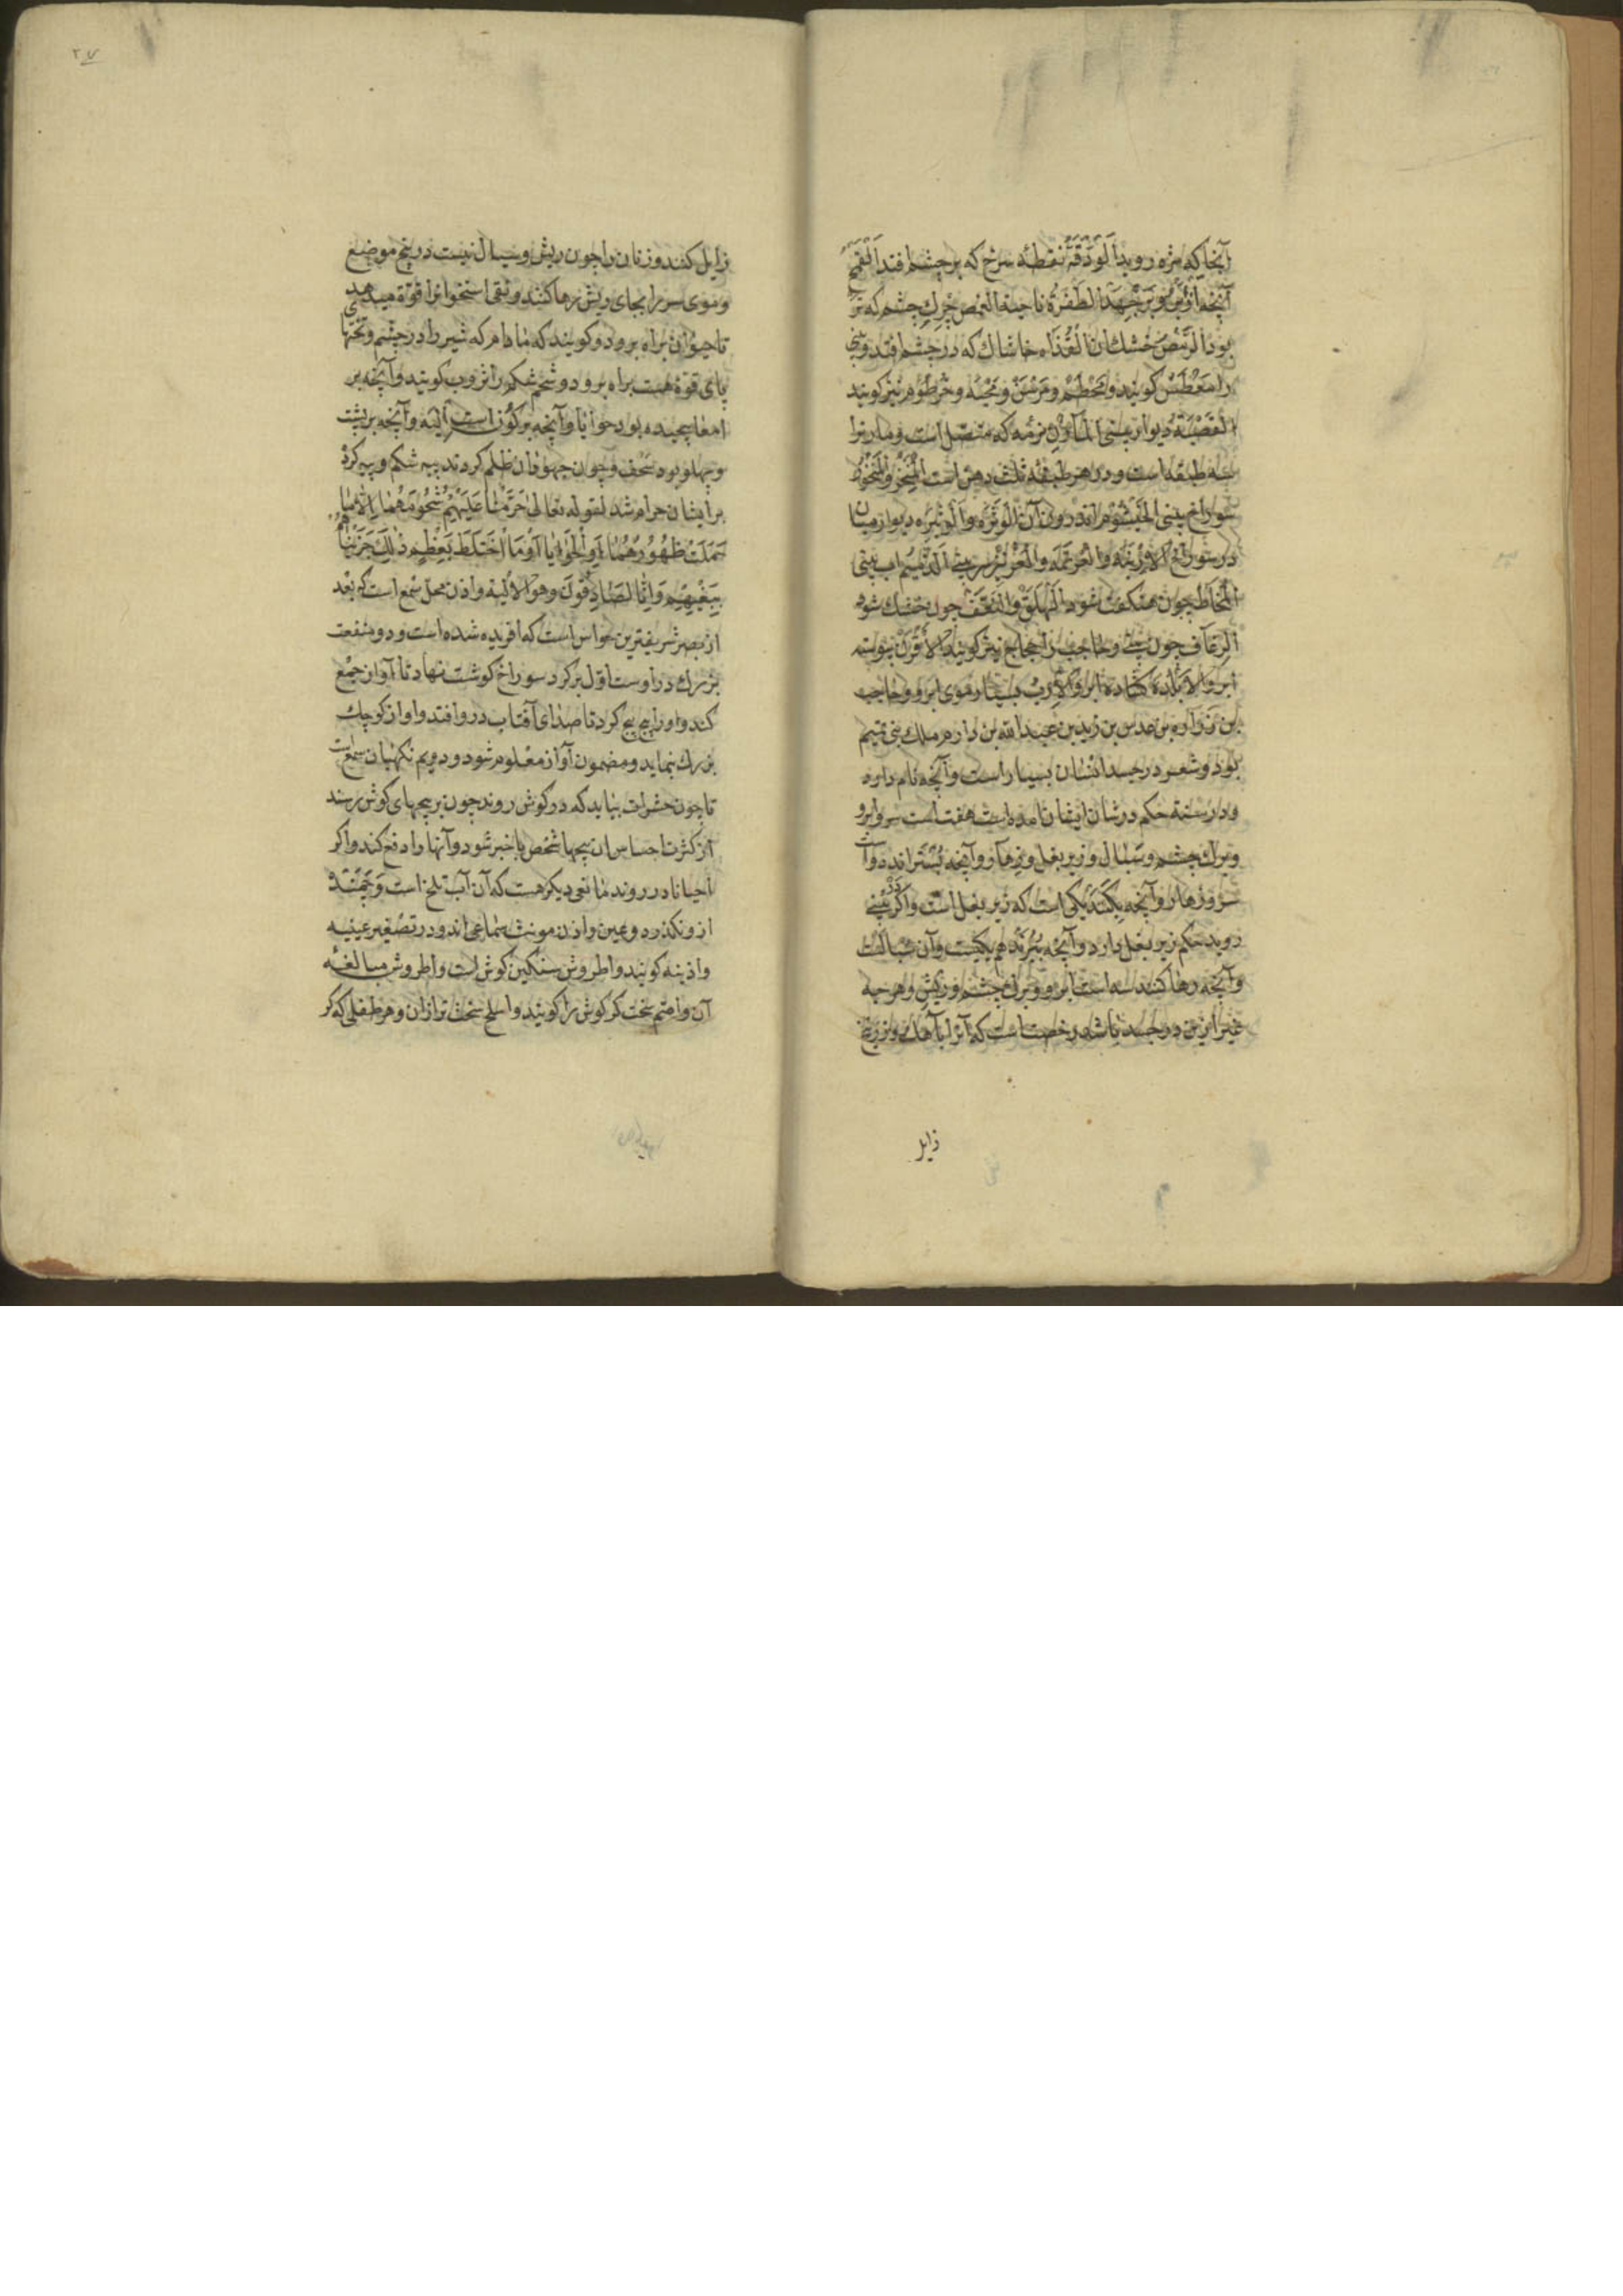 آنجا که مژه روید اَلوَدَقَةُ نقطهٔ سرخ که بر چشم افتد
آنچه از بینی الظفرة ناخنه الغمص چرک چشم که تر
بود الرمص خشک آن القذاه خاشاک که در چشم افتد و بینی
را معطس کویند و مخطم و مرسن و خرطوم نیز کویند
القصبة دیوار بینی المارن نرمه که متصل است و مارنرا
سه طبقه است و در هر طبقه ثلث دهن است المنخر
سوراخ بینی الخیشوم اندرون آن الوتره والوتیره دیوار میان
دو سوراخ الارنبه والعرتمه سر بینی اب بینی
المخاط چون
الرعاف چون و حاجب را حجاج نیز کویند الاقرن پیوسته
ابرو الابلد کشاده ابرو الازب بسیار موی ابرو و حاجب
بن زراره بن عدس بن زید بن عبدالله بن دارم ملک بنی تمیم
بود و شعر در جسد انسان بسیار است و آنچه نام دارد
و در سنة حکم در شان ایشان آمده است هفت است سر و ابرو
و برک چشم و سبال و زیر بغل و زهار و آنچه بسترانند دو است
سر و زهار و آنچه بکنند یکی است که زیر بغل است و اکر در بینی
روید حکم زیر بغل دارد و آنچه ببرند هم یکیست و آن سبالت
و آنچه رها کنند سه است ابرو و برک چشم و ریش و هر چه
غیر ازین در جسد باشد رخصت است که آنرا بآهک و زرنیخ
زایل
۲۷
زایل کنند و زنان را چون ریش و سبال نیست در پنج موضع
و موی سر را بجای ریش رها کنند و نقی استخوانرا قوة میدهد
تا حیوان براه برود و کویند که مادام که شیر را در چشم و
پای قوة هست براه برود و شحم شکم را ثروب کویند و آنچه بر
امعا پیچیده بود حوایا و آنچه بر کون است الیه و آنچه بر پشت
و پهلو بود سحف و چون جهودان ظلم کردند پیه شکم و پیه کرده
بر ایشان حرام شد لقوله تعالی حَرَّمْنَا عَلَيْهِمْ شُحُومَهُمَا إِلَّا مَا
حَمَلَتْ ظُهُورُهُمَا أَوِ الْحَوَايَا أَوْ مَا اخْتَلَطَ بِعَظْمٍ ذَلِكَ جَزَيْنَاهُمْ
بِبَغْيِهِمْ وَإِنَّا لَصَادِقُونَ وهو الالیه و اذن محل سمع است که بعد
از بصر شریفترین حواس است که افریده شده است و دو منفعت
بزرک در اوست اوّل بر کرد سوراخ کوشت نهاد تا آواز جمع
کند و او را پیچ پیچ کرد تا صدای آفتاب در و افتد و اواز کوچک
بزرک نماید و مضمون آواز معلوم شود و دویم نکهبان سمعست
تا چون حشرات بیاید که در کوش روند چون بر پیچهای کوش رسند
از کثرت احساس ان پیچها شخص با خبر شود و آنها را دفع کند و اکر
احیانا در روند مانعی دیکر هست که آن آب تلخ است
از و نکذرد و عین و اذن مونث سماعی اند و در تصغیر عینیه
و اذینه کویند و اطروش سنکین کوش است و اطروش مبالغهٔ
آن و اصم سخت کر کوش را کویند و اسلخ سخت تر از آن و هر طفلی که کر